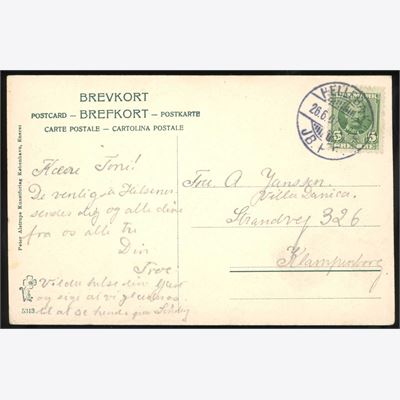 BREVKORT
POSTCARD — BREFKORT — POSTKARTE
CARTE POSTALE — CARTOLINA POSTALE
Peter Alstrups Kunstforlag København, Eneret
HELLERUP
26.6
JB.P.E.
5 5
Kære Tove!
De venligste Hilsener
sendes dig og alle dine
fra os alle tre
Din
Tove
Vil du hilse din
og sige at vi glæder os
til at se hende paa
Fru A Janssen
Villa Danica
Strandvej 326
Klampenborg
5313